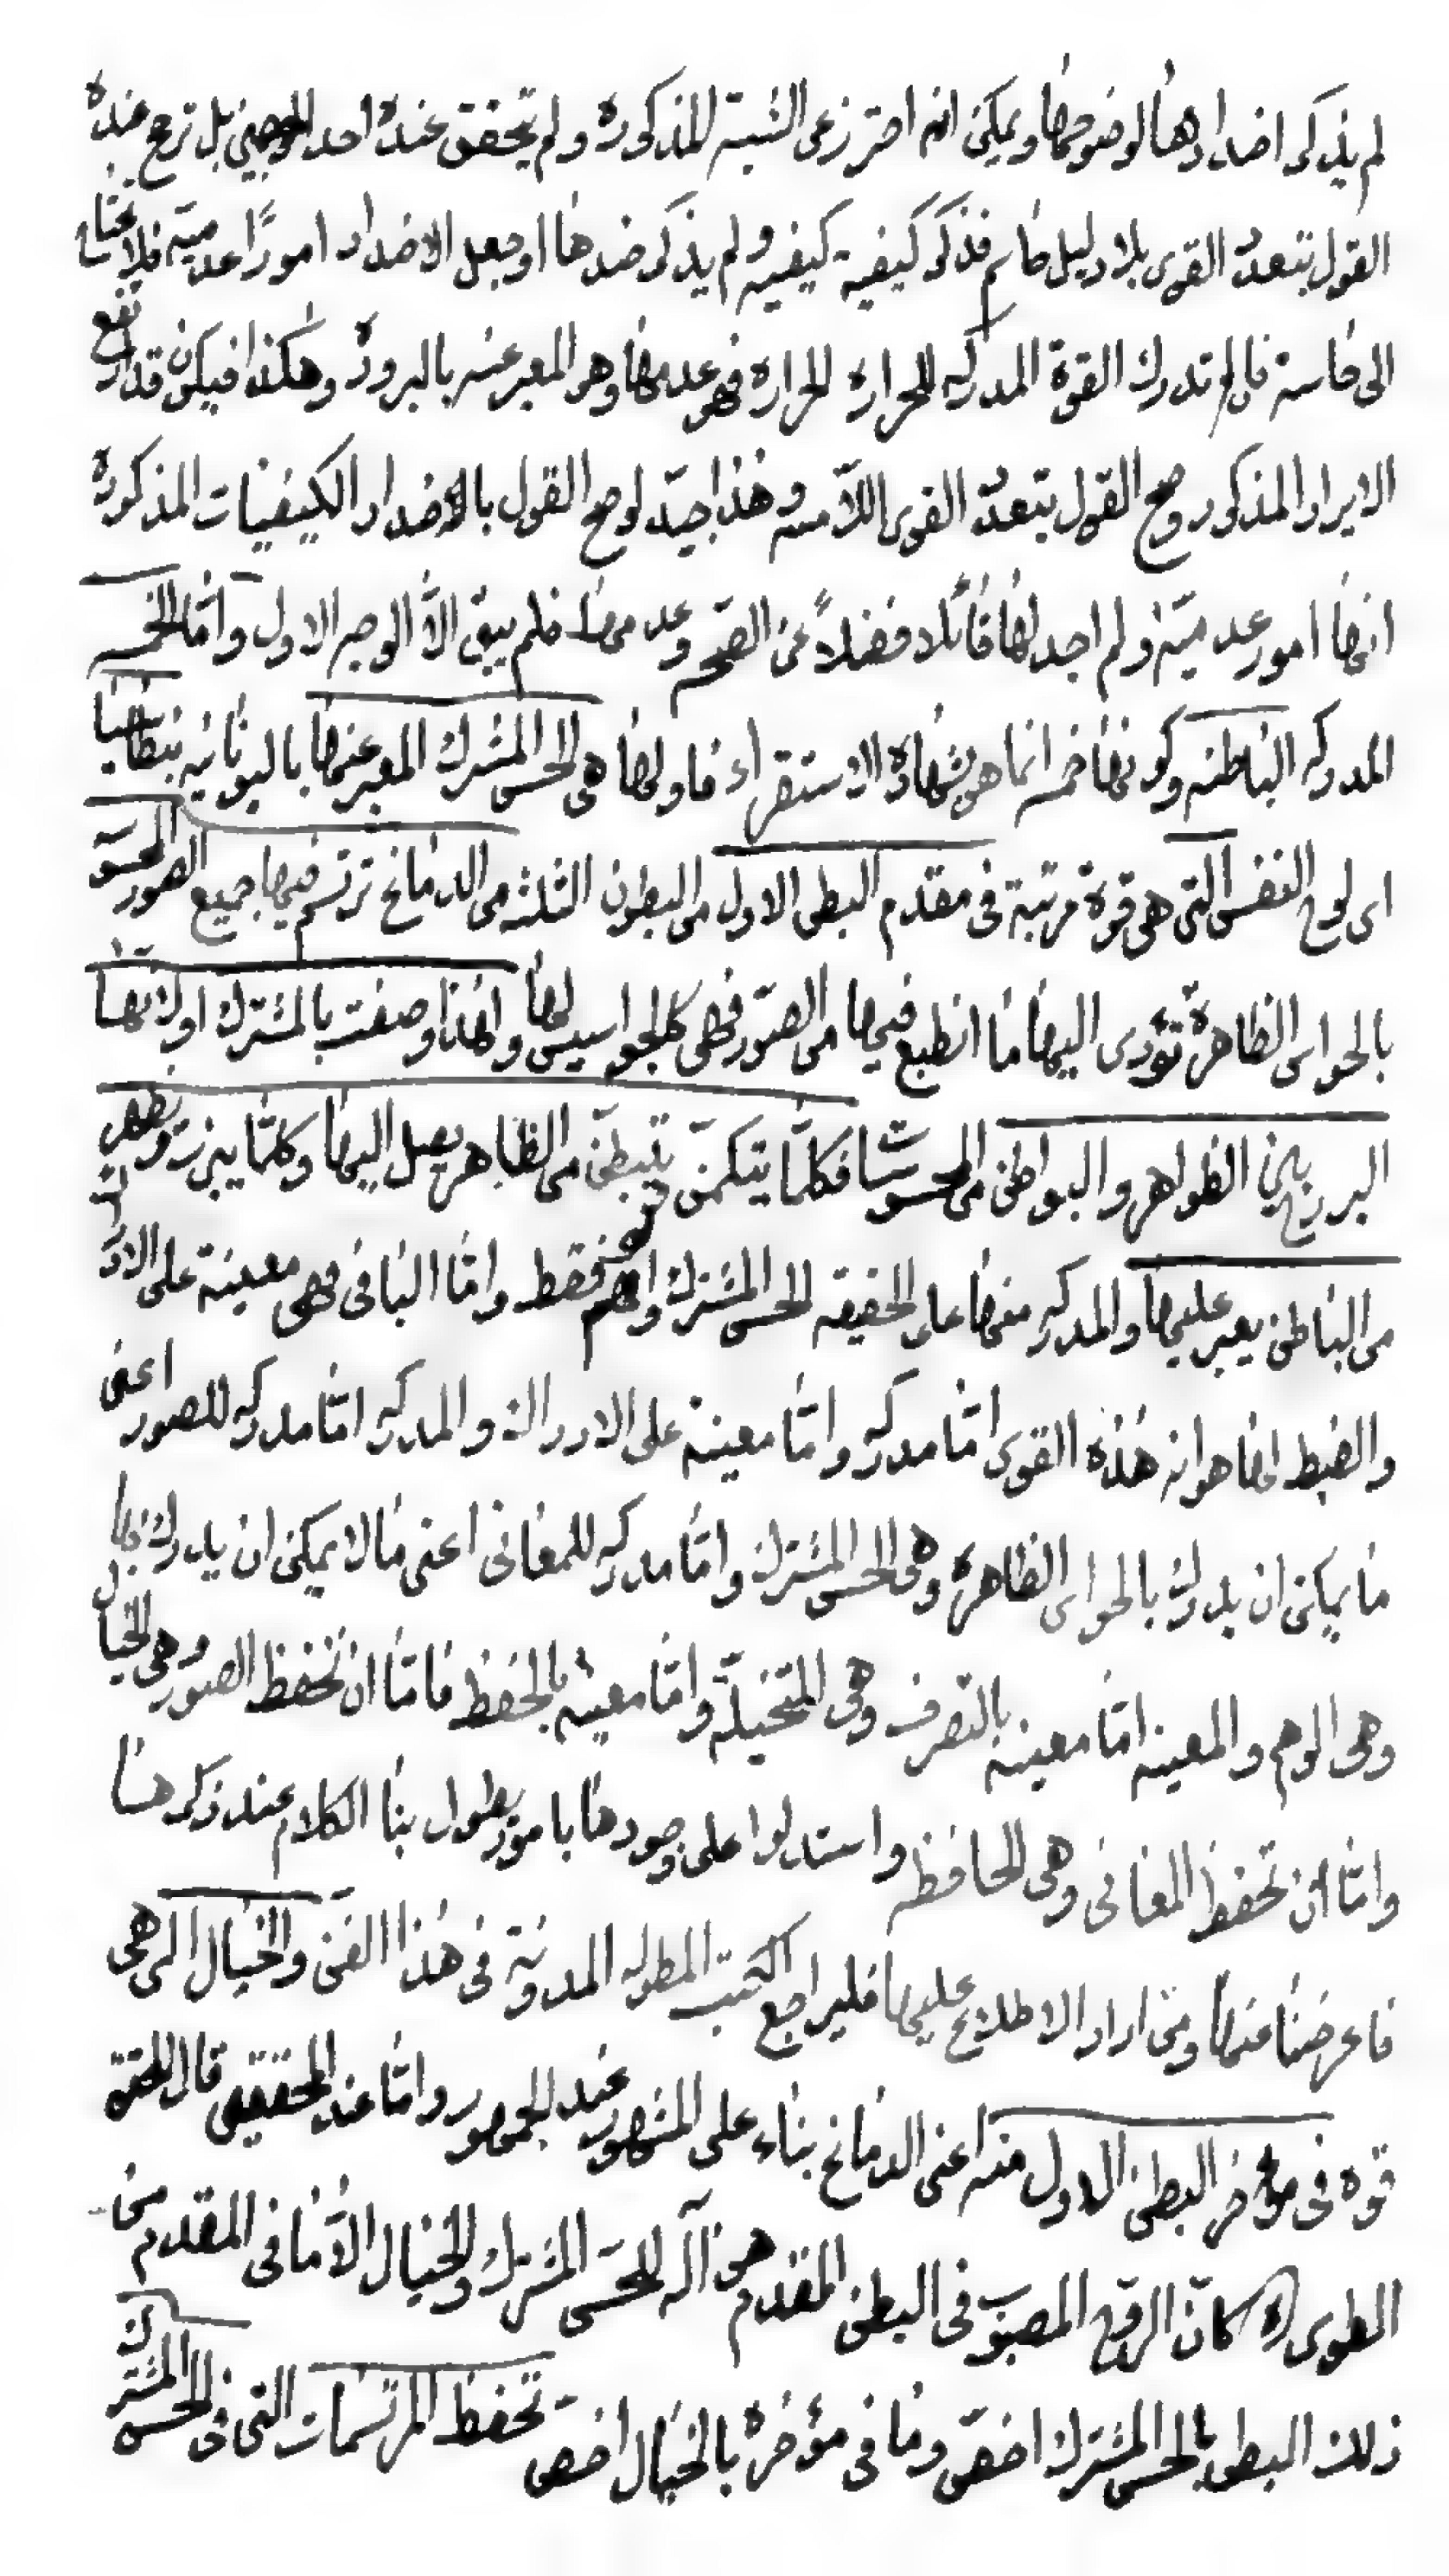 لم يذكر اضدادها لوضوحها ويمكن انه احترز عن الشبهة المذكورة ولم يتحقق عنده احد الوجهين بل ترجح عنده
القول بتعدد القوى بلا دليل حاسم فذكر كيفية كيفية ولم يذكر ضدها او جعل الاضداد امورًا عدمية فلا تحتاج
الى حاسة فما لم تدرك القوة المدركه للحرارة الحرارة فهو عدمها وهو المعبر عنه بالبرودة وهكذا فيكون قد ارتفع
الايراد المذكور وصح القول بتعدد القوى اللامسه وهذا جيد لو صح القول بالاضداد الكيفيات المذكورة
انها امور عدمية ولم اجد لها قائلا فضلاً عن الصحه وعدمها فلم يبق الاّ الوجه الاول وامّا الخمسه
المدركه الباطنه وكونها خمسه انما هو بشهادة الاستقراء فاولها هى الحس المشترك المعبر عنها باليونانيه بنطاسيا
اى لوح النفس التى هى قوة مرتبة فى مقدم البطن الاول من البطون الثلثه من الدماغ ترتسم فيها جميع الصور المحسوسة
بالحواس الظاهرة تؤدى اليها ما انطبع فيها من الصور فهى كالجواسيس لها ولهذا وصفت بالمشترك او لانها
البرزخ بين الظواهر والبواطن من المحسوسات فكلما يتكمن يتبطن من الظاهر يصل اليها وكلما يبرز ويظهر
من الباطن يعبر عليها والمدركه منها على الحقيقه الحس المشترك والوهم فقط واما الباقى فهى معينة على الادراك
والضبط لها هو ان هذه القوى امّا مدركه وامّا معينة على الادراك والمدركه امّا مدركه للصور اعنى
ما يمكن ان يدرك بالحواس الظاهرة وهى الحس المشترك وامّا مدركه للمعانى اعنى ما لا يمكن ان يدرك بها
وهى الوهم والمعينه امّا معينه بالتصرف وهى المتخيلة وامّا معينه بالحفظ فامّا ان تحفظ الصور وهى الخيال
وامّا ان تحفظ المعانى وهى الحافظه واستدلوا على وجودها بامور يطول بنا الكلام عند ذكرها
فاعرضنا عنها ومن اراد الاطلاع عليها فليراجع الكتب المطوله المدونة فى هذا الفن والخيال التى هى
قوه فى مؤخر البطن الاول منه اعنى الدماغ بناء على المشهور عند الجمهور وامّا عند المحققين قال المحقق
الطوسى ره كان الروح المصبوب فى البطن المقدم هى آله للحس المشترك والخيال الاّ ما فى المقدم من
ذلك البطن بالحس المشترك اخص وما فى مؤخره بالخيال اخص تحفظ المرتسمات التى فى الحس المشترك